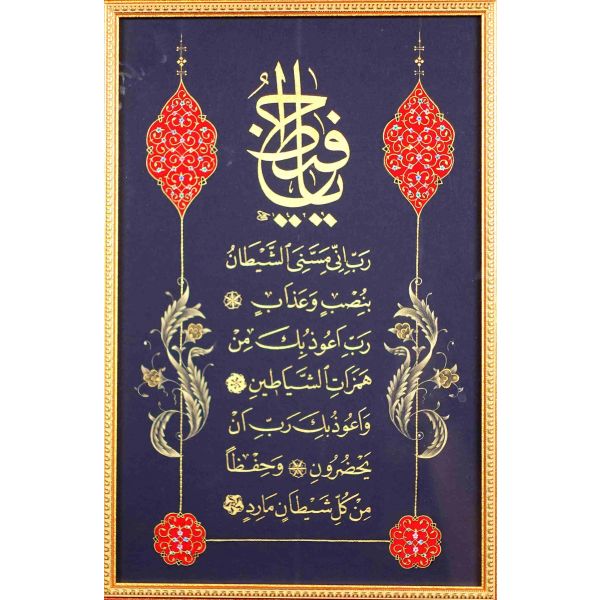 يا
رَبِّ اِنِّي مَسَّنِيَ الشَّيْطَانُ
بِنُصْبٍ وَعَذَابٍ
رَبِّ اَعُوذُ بِكَ مِنْ
هَمَزَاتِ الشَّيَاطِينِ
وَاَعُوذُ بِكَ رَبِّ اَنْ
يَحْضُرُونِ وَحِفْظاً
مِنْ كُلِّ شَيْطَانٍ مَارِدٍ